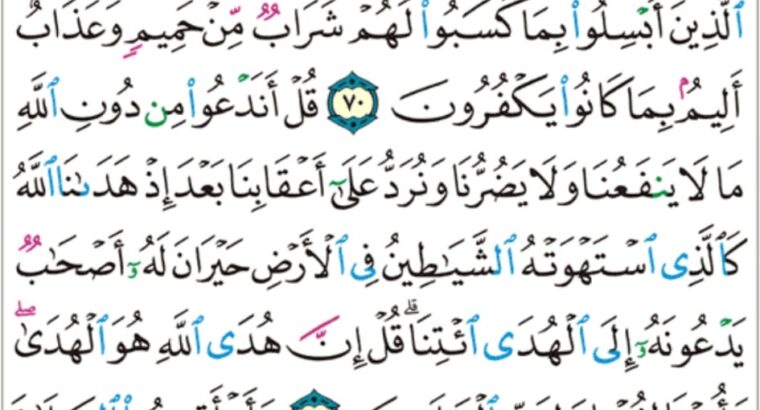 ٱلَّذِينَ أُبْسِلُوا۟ بِمَا كَسَبُوا۟ لَهُمْ شَرَابٌ مِّنْ حَمِيمٍ وَعَذَابٌ
أَلِيمٌۢ بِمَا كَانُوا۟ يَكْفُرُونَ ٧٠ قُلْ أَنَدْعُوا۟ مِن دُونِ ٱللَّهِ
مَا لَا يَنفَعُنَا وَلَا يَضُرُّنَا وَنُرَدُّ عَلَىٰٓ أَعْقَابِنَا بَعْدَ إِذْ هَدَىٰنَا ٱللَّهُ
كَٱلَّذِى ٱسْتَهْوَتْهُ ٱلشَّيَـٰطِينُ فِى ٱلْأَرْضِ حَيْرَانَ لَهُۥٓ أَصْحَـٰبٌ
يَدْعُونَهُۥٓ إِلَى ٱلْهُدَى ٱئْتِنَا ۗ قُلْ إِنَّ هُدَى ٱللَّهِ هُوَ ٱلْهُدَىٰ ۖ